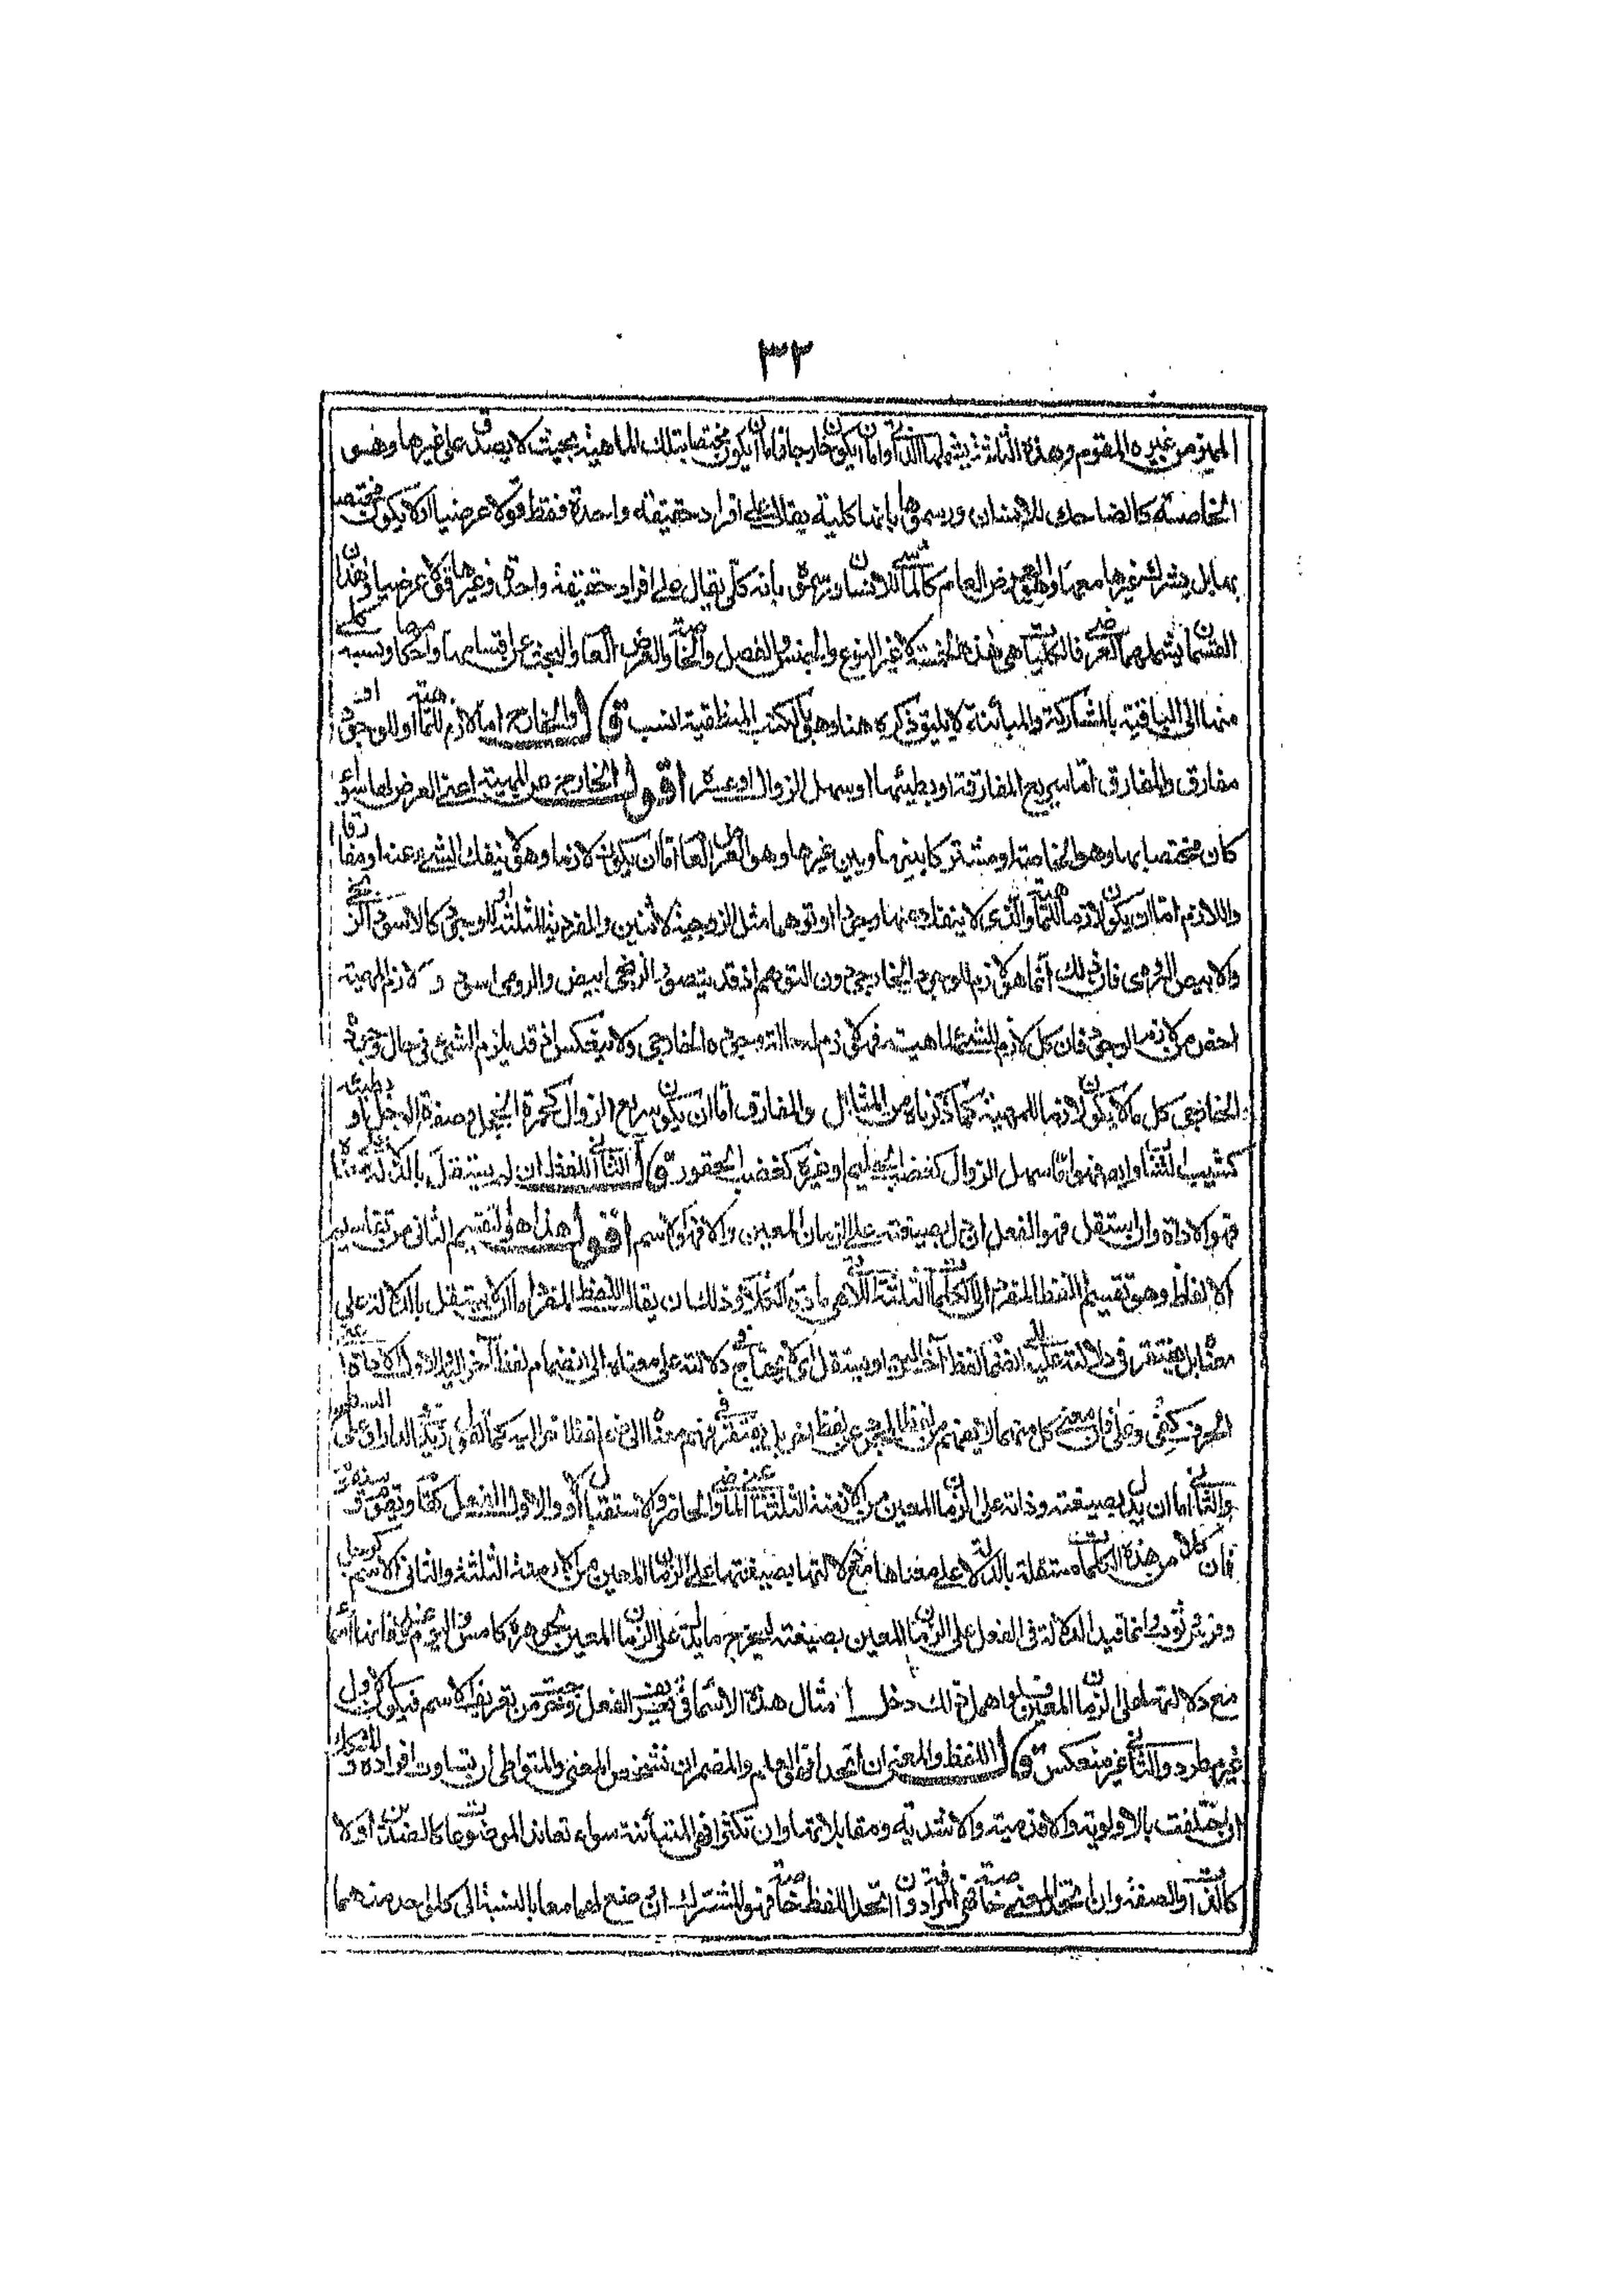 ٣٢
المميز من غيره المقوم وهذه الثلاثة يشملها الذاتي واما ان يكون خارجا فاما ان يكون مختصا بتلك الماهية بحيث لا يصدق على غيرها وهو
الخاصة كالضاحك للانسان ورسموها بانها كلية يقال على افراد حقيقة واحدة فقط قولا عرضيا او لا يكون مختصا
بها بل يشترك غيرها معها وهو العرض العام كالماشي للانسان ورسموه بانه كلي يقال على افراد حقيقة واحدة وغيرها قولا عرضيا وهذان
القسمان يشملهما العرضي فالكليات هي هذه الخمسة لا غير النوع والجنس والفصل والخاصة والعرض العام والبحث عن اقسامها واحكامها ونسبة كل
منها الى الباقية بالمشاركة والمباينة لا يليق ذكره هنا وهو بالكتب المنطقية انسب قال والخارج اما لازم للماهية او للوجود او
مفارق والمفارق اما سريع المفارقة او بطيئها او سهل الزوال او عسره اقول الخارج عن المهية اعني العرض لها سواء
كان مختصا بها وهو الخاصة او مشتركا بينها وبين غيرها وهو العرض العام اما ان يكون لازما وهو لا ينفك الشيء عنه او مفارقا
واللازم اما ان يكون لازما للماهية والذي لا ينفك عنها وجودا او توهما مثل الزوجية لاثنين والفردية لثلثة او للوجود كالاسود الزنجي
والابيض الرومي فان ذلك انما هو لازم للوجود الخارجي دون التوهم اذ قد يتصور الزنجي ابيض والرومي اسود و لازم المهية
اخص من لازم الوجود فان كل لازم لشيء لماهيته فهو لازم له حالة وجوده الخارجي ولا ينعكس اذ قد يلزم الشيء في حال وجوده
الخارجي كل ما لا يكون لازما للمهية كما ذكرناه من المثال والمفارق اما ان يكون سريع الزوال كحمرة الخجل وصفرة الوجل او بطيئه
كشيب الشباب وايضا فهو اما سهل الزوال كغضب الحليم او غيره كغضب الحقود قال الثاني اللفظ ان لم يستقل بالدلالة على معناه
فهو الاداة وان استقل فهو الفعل ان دل بصيغته على الزمان المعين والا فهو الاسم اقول هذا هو التقسيم الثاني من تقاسيم
الالفاظ وهو تقسيم اللفظ المفرد الى الكلمات الثلثة التي هي مادة الكلام وذلك ان يقال اللفظ المفرد اما ان لا يستقل بالدلالة على
معناه بل يفتقر في دلالته عليه الى انضمام لفظ آخر اليه او يستقل اي لا يحتاج في دلالته على معناه الى انضمام لفظ آخر اليه والاول الاداة
الحرف كفي وعلى فان معنى كل منهما لا يفهم من لفظه المجرد عن لفظ اخر بل يفتقر في فهم معناه الى ضم لفظ اخر اليه كما تقول زيد في الدار او على السطح
والثاني اما ان يدل بصيغته وذاته على الزمان المعين من الازمنة الثلثة الماضي والحاضر والاستقبال او لا والاول الفعل كقام ويقوم
فان كلا من هذه الكلمات مستقلة بالدلالة على معناها مع دلالتها بصيغتها على الزمان المعين من الازمنة الثلثة والثاني الاسم كرجل
وفرس وثوب وانما قيد الدلالة في الفعل على الزمان المعين بصيغته ليخرج ما يدل على الزمان المعين بجوهره كامس واليوم وغد فانها اسما
مع دلالتها على الزمان المعين ولو اهمل ذلك دخل امثال هذه الاسماء في تعريف الفعل وخرجت من تعريف الاسم فيكون الاول
غير مطرد والثاني غير منعكس قال اللفظ والمعنى ان اتحدا فهو العلم والمضمر ان تشخص المعنى والمتواطي ان تساوت افراده والمشكك
ان اختلفت بالاولوية والاقدمية والاشدية ومقابلاتها وان تكثرا فهي المتباينة سواء تعاند الموضوعات كالضدين او لا
كالذات والصفة وان اتحد المعنى خاصة فهي المترادفة وان اتحد اللفظ خاصة فهو المشترك ان وضع لهما معا بالنسبة الى كل واحد منهما